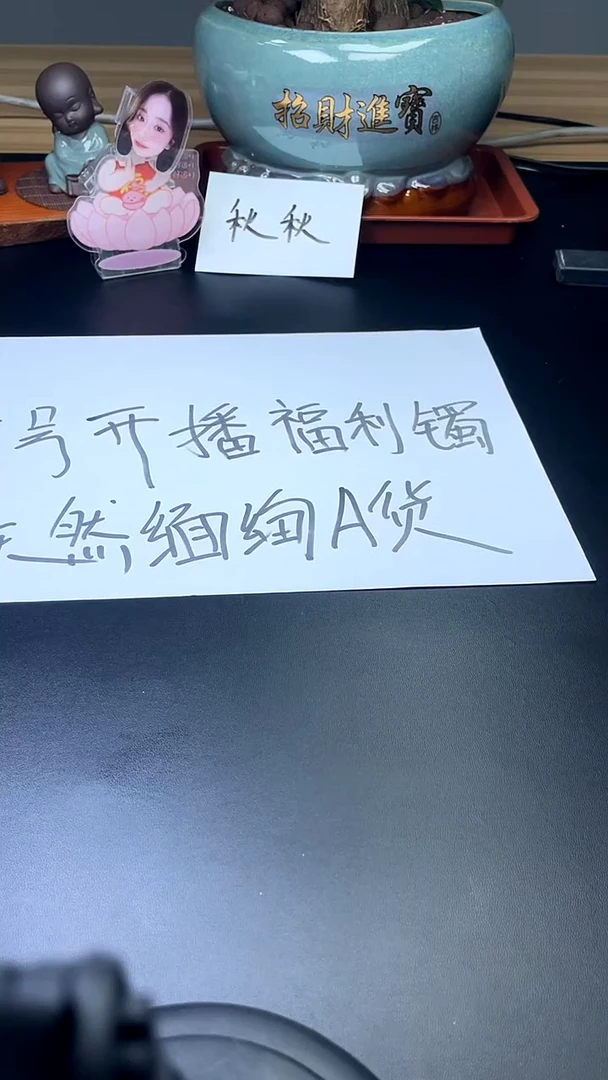 招財進寶
秋秋
号开播福利镯
天然缅甸A货